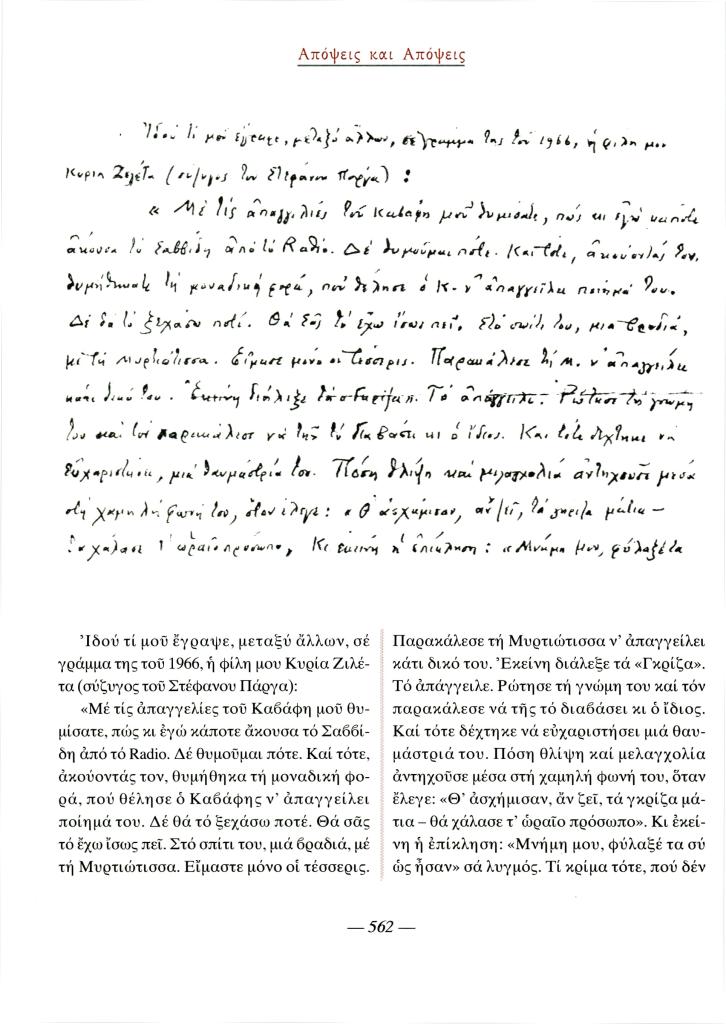 Απόψεις και Απόψεις
Ἰδού τί μοῦ ἔγραψε, μεταξύ ἄλλων, σέ γράμμα της τοῦ 1966, ἡ φίλη μου
Κυρία Ζιλέτα (σύζυγος τοῦ Στέφανου Πάργα) :
« Μέ τίς ἀπαγγελίες τοῦ Καβάφη μοῦ θυμίσατε, πώς κι ἐγώ κάποτε
ἄκουσα τό Σαββίδη ἀπό τό Radio. Δέ θυμοῦμαι πότε. Καί τότε, ἀκούοντάς τον,
θυμήθηκα τή μοναδική φορά, πού θέλησε ὁ Κ. ν' ἀπαγγείλει ποίημά του.
Δέ θά τό ξεχάσω ποτέ. Θά σᾶς τό ἔχω ἴσως πεῖ. Στό σπίτι του, μιά βραδιά,
μέ τή Μυρτιώτισσα. Εἴμαστε μόνο οι τέσσερις. Παρακάλεσε τή Μ. ν' ἀπαγγείλει
κάτι δικό του. Ἐκείνη διάλεξε τά «Γκρίζα». Τό ἀπάγγειλε. Ρώτησε τή γνώμη
του καί τόν παρακάλεσε νά τῆς τό διαβάσει κι ὁ ἴδιος. Καί τότε δέχτηκε νά
εὐχαριστήσει, μιά θαυμάστριά του. Πόση θλίψη καί μελαγχολία ἀντηχοῦσε μέσα
στή χαμηλή φωνή του, ὅταν ἔλεγε: « Θ' ἀσχήμισαν, ἄν ζεῖ, τά γκρίζα μάτια –
θά χάλασε τ' ὡραῖο πρόσωπο». Κι ἐκείνη ἡ ἐπίκληση : « Μνήμη μου, φύλαξέ τα
Ἰδού τί μοῦ ἔγραψε, μεταξύ ἄλλων, σέ
γράμμα της τοῦ 1966, ἡ φίλη μου Κυρία Ζιλέ-
τα (σύζυγος τοῦ Στέφανου Πάργα):
«Μέ τίς ἀπαγγελίες τοῦ Καβάφη μοῦ θυ-
μίσατε, πώς κι ἐγώ κάποτε ἄκουσα τό Σαββί-
δη ἀπό τό Radio. Δέ θυμοῦμαι πότε. Καί τότε,
ἀκούοντάς τον, θυμήθηκα τή μοναδική φο-
ρά, πού θέλησε ὁ Καβάφης ν' ἀπαγγείλει
ποίημά του. Δέ θά τό ξεχάσω ποτέ. Θά σᾶς
τό ἔχω ἴσως πεῖ. Στό σπίτι του, μιά βραδιά, μέ
τή Μυρτιώτισσα. Εἴμαστε μόνο οἱ τέσσερις.
Παρακάλεσε τή Μυρτιώτισσα ν' ἀπαγγείλει
κάτι δικό του. Ἐκείνη διάλεξε τά «Γκρίζα».
Τό ἀπάγγειλε. Ρώτησε τή γνώμη του καί τόν
παρακάλεσε νά τῆς τό διαβάσει κι ὁ ἴδιος.
Καί τότε δέχτηκε νά εὐχαριστήσει μιά θαυ-
μάστριά του. Πόση θλίψη καί μελαγχολία
ἀντηχοῦσε μέσα στή χαμηλή φωνή του, ὅταν
ἔλεγε: «Θ' ἀσχήμισαν, ἄν ζεῖ, τά γκρίζα μά-
τια – θά χάλασε τ' ὡραῖο πρόσωπο». Κι ἐκεί-
νη ἡ ἐπίκληση: «Μνήμη μου, φύλαξέ τα σύ
ὡς ἦσαν» σά λυγμός. Τί κρίμα τότε, πού δέν
— 562 —